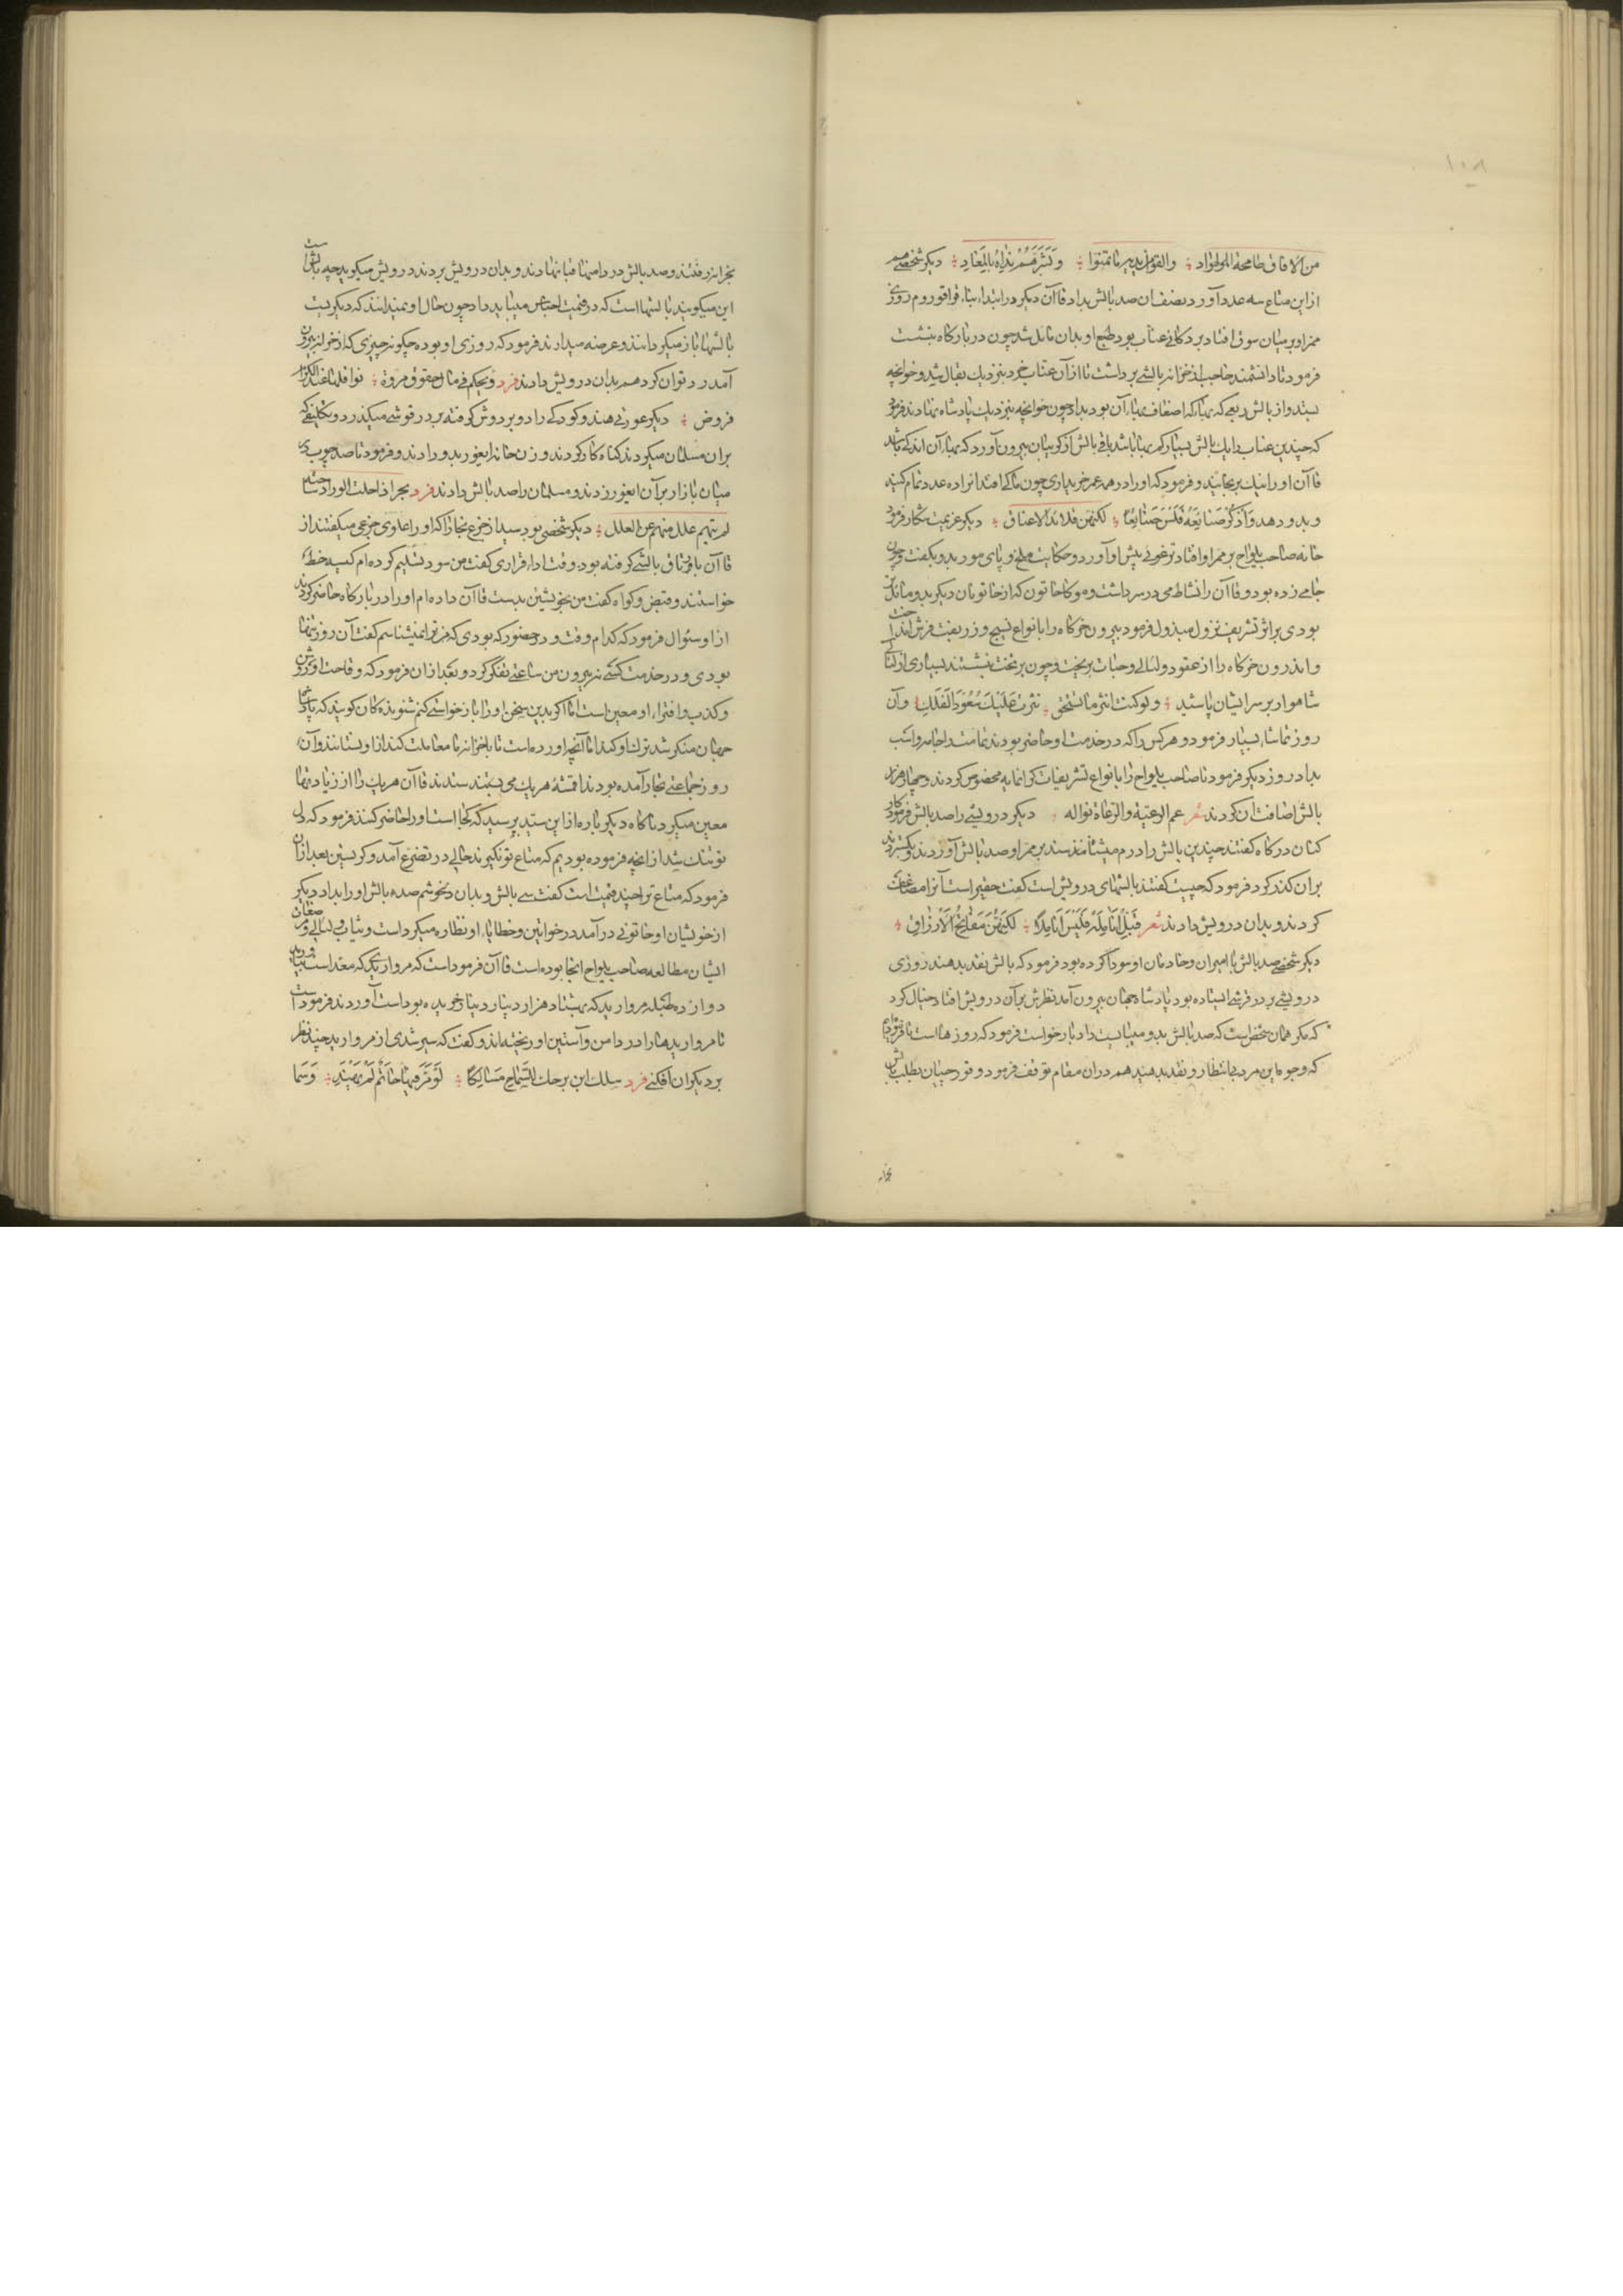 ۱۰۸
من الافاق طامحة الهوادی والقوا بدیهم ما تمنوا و بشرهم نداه بالمعاد دیگر شخصی هم
ازین متاع سه عدد آورد بنصف آن صد بالش بداد قاآن دیگر در ابتداء بناء قراقوروم روزی
ممر او بر میان سوق افتاد بر دکانی عناب بود طبع او بدان مایل شد چون در بارگاه بنشست
فرمود تا دانشمند حاجب از خزانه بالشی برداشت تا از آن عناب خرد بنزدیک بقال شد و خوانچه
بستد و از بالش ربعی که بهاء آن اضعاف بهاء آن بود بداد چون خوانچه بنزدیک پادشاه نهادند فرمود
که چندین عناب را یک بالش بسیار کم بها باشد باقی بالش از کریبان بیرون آورد که بهاء آن اندکی باشد
قاآن او را نیک برنجانید و فرمود که او را در همه عمر خریداری چون ما کی افتد آنرا ده عدد تمام کنید
و بدو دهد واذکر صنائعه فلسن صنائعا لکنهن قلائد الاعناق دیگر عزیمت شکار فرمود
خانه صاحب یلواج بر ممر او افتاد ترغوئی پیش او آورد و حکایت ملخ و پای مور بدو بگفت و چون
جامی زده بود و قاآن را نشاط می در سر داشت و موکا خاتون که از خاتونان دیگر بدو مائل تر
بودی بر اثر تشریف نزول مبذول فرمود بیرون خرگاه را بانواع نسیج و زربفت فرش انداخت
و اندرون خرگاه را از عقود و لئالی و حبات بریخت و چون بر تخت بنشستند بسیاری از لئالی
شاهوار بر سر ایشان پاشید ولو کنت انثر ما تستحق نثرت علیک سعود الفلک و آن
روز تماشاء بسیار فرمود و هر کس را که در خدمت او حاضر بودند تمامت را جامه و اسب
بداد روز دیگر فرمود تا صاحب یلواج را بانواع تشریفات گرانمایه مخصوص کردند و چهار هزار
بالش اضافت آن کردند شعر عم الرعیة والرعاة نواله دیگر درویشی را صد بالش فرمود کار
کنان درگاه گفتند چندین بالش را درم میشناسد بر ممر او صد بالش آوردند و بگستردند
بران گذر کرد فرمود که چیست گفتند بالشهای درویش است گفت حقیر است آنرا مضاعف
کردند و بدان درویش دادند شعر قبل انامله فلسن اناملا لکنهن مفاتیح الارزاق
دیگر شخصی صد بالش با امیران و خادمان او سودا کرده بود فرمود که بالش نقد بدهند روزی
درویشی بر در قرشی ایستاده بود پادشاه جهان بیرون آمد نظرش بر آن درویش افتاد خیال کرد
که مگر همان شخص است که صد بالش بدو میبایست داد بازخواست فرمود که روزها است تا فرموده‌ایم
که وجوه این مرد بی انتظار و نقد بدهید هم دران مقام توقف فرمود و قورچیان بطلب بالش
بخزانه
بخزانه رفتند و صد بالش در دامنها قباء نهادند و بدان درویش بردند درویش میگوید چه بالش است
این میگویند بالشها است که در قیمت اجناس میباید داد چون حال او نمیدانند که دیگریست
بالشها باز میگردانند و عرضه میدارند فرمود که روزی او بوده چگونه چیزی که از خزانه بیرون
آمد رد توان کرد همه بدان درویش دادند فرد ویحکم فی مال حقوق مروة نوافلها عند الکرام
فروض دیگر عورتی هندو کودکی را دو بر دوش گرفته بر در قرشی میگذرد و تکلیفی که
بران مسلمان میکردند گناه کار کردند و زن خانه ایغور بدو دادند و فرمود تا صد چوب در
میان بازار بر آن ایغور زدند و مسلمان را صد بالش دادند فرد بحر اذا حلت الوراد ساحته
لم یثنهم علل منهم عن العلل دیگر شخصی بود سید از خرغ بخارا که او را علوی خرغی میگفتند از
قاآن باورتاق بالشی گرفته بود وقت اداء قراری گفت من سود تسلیم کرده‌ام کسیه خط
خواستند و قبض و گواه گفت من بخویشتن بدست قاآن داده‌ام او را در بارگاه حاضر کردند
ازو سئوال فرمود که کدام وقت و در حضور که بودی که من ترا نمیشناسم گفت آن روز تنها
بودی و در خدمت کسی نه بیرون من ساعتی تفکر کرد و بعد ازان فرمود که وقاحت او روشن
و کذب و افتراء او معین است اما اگر بدین سخن او را بازخواستی کنم شنونده‌کان گویند که پادشاه
جهان منکر شد ترک او گیرند اما آنچه آورده است تا با خزانه ما معاملت کند ازو نستانند و آن
روز جماعتی تجار آمده بودند اقمشه هر یک می بستند ستدند قاآن هر یک را از زیاد بها
معین میکرد ناگاه دیگر باره ازین سید پرسید که کجا است او را حاضر کنند فرمود که دل
تو تنک شد از آنچه فرموده بودیم که متاع تو نگیرند حالی در تضرع آمد و گریستن بعد ازان
فرمود که متاع ترا چند قیمت است گفت سی بالش و بدان دلخوشم صده بالش او را بداد دیگر
از خویشان او خاتونی در آمد در خواتین و خطایا او نظاره میکرد است و ثیاب و لئالی و مرصعات
ایشان مطالعه صاحب یلواج آنجا بوده است قاآن فرمود است که مروارید که معد است بیارند
دوازده طبله مروارید که بهشتاد هزار دینار دینار خریده بود است آوردند فرمود است
تا مرواریدها را در دامن و آستین او ریخته‌اند و گفت که سیر شدی از مروارید چند نظر
بر دیگران افکنی فرد سلک ابن برحات السماح مسالکا لو مر فیها حاتم لم یهتد و سما